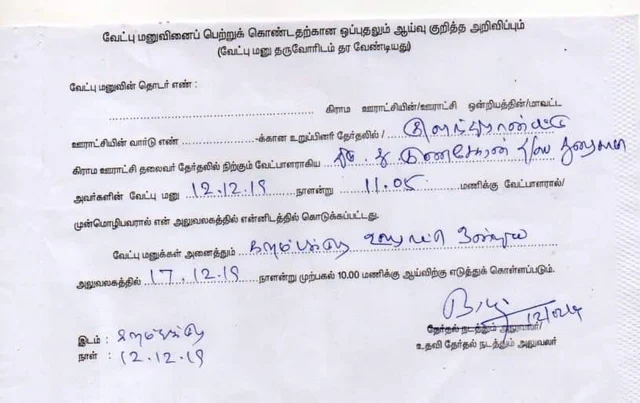 வேட்பு மனுவினைப் பெற்றுக் கொண்டதற்கான ஒப்புதலும் ஆய்வு குறித்த அறிவிப்பும்
(வேட்பு மனு தருவோரிடம் தர வேண்டியது)
வேட்பு மனுவின் தொடர் எண் :
கிராம ஊராட்சியின்/ஊராட்சி ஒன்றியத்தின்/மாவட்ட
ஊராட்சியின் வார்டு எண் -க்கான உறுப்பினர் தேர்தலில் /
கிராம ஊராட்சி தலைவர் தேர்தலில் நிற்கும் வேட்பாளராகிய
அவர்களின் வேட்பு மனு 12.12.19 நாளன்று 11.05 மணிக்கு வேட்பாளரால்/
முன்மொழிபவரால் என் அலுவலகத்தில் என்னிடத்தில் கொடுக்கப்பட்டது.
வேட்பு மனுக்கள் அனைத்தும் ஊராட்சி ஒன்றிய
அலுவலகத்தில் 17.12.19 நாளன்று முற்பகல் 10.00 மணிக்கு ஆய்விற்கு எடுத்துக் கொள்ளப்படும்.
தேர்தல் நடத்தும் அலுவலர்/
இடம் :
உதவி தேர்தல் நடத்தும் அலுவலர்
நாள் : 12.12.19